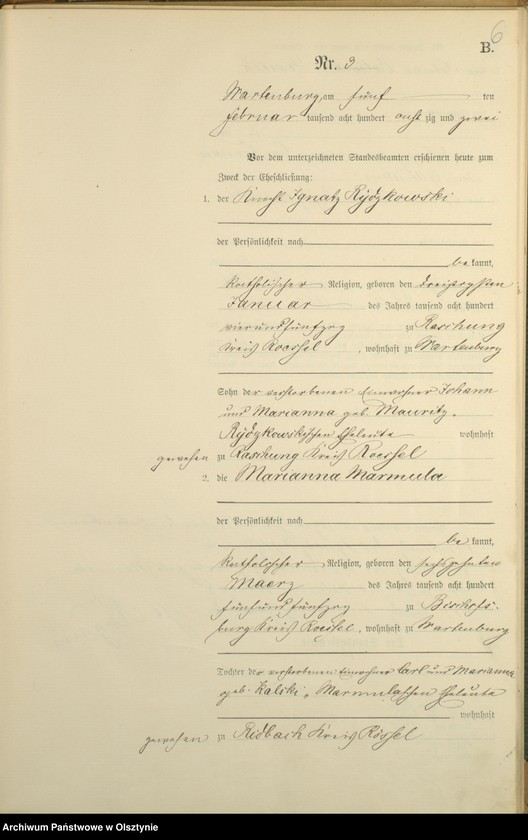 6
B.
Nr. 3
Wartenburg, am fünf ten
Februar tausend acht hundert acht zig und zwei
Vor dem unterzeichneten Standesbeamten erschienen heute zum
Zweck der Eheschließung:
1. der Knecht Ignatz Rydzkowski
der Persönlichkeit nach
be kannt,
katholischer Religion, geboren den dreißigsten
Januar des Jahres tausend acht hundert
vierundfünfzig zu Raschung
Kreis Roessel, wohnhaft zu Wartenburg
Sohn der verstorbenen Einwohner Johann
und Marianna geb. Mauritz,
Rydzkowskischen Eheleute wohnhaft
gewesen zu Raschung Kreis Roessel
2. die Marianna Marmula
der Persönlichkeit nach
be kannt,
katholischer Religion, geboren den sechszehnten
Maerz des Jahres tausend acht hundert
fünfundfünfzig zu Bischofs-
burg Kreis Roessel, wohnhaft zu Wartenburg
Tochter der verstorbenen Einwohner Carl und Marianna
geb. Kalski, Marmulaschen Eheleute
wohnhaft
gewesen zu Ridbach Kreis Rössel
Archiwum Państwowe w Olsztynie